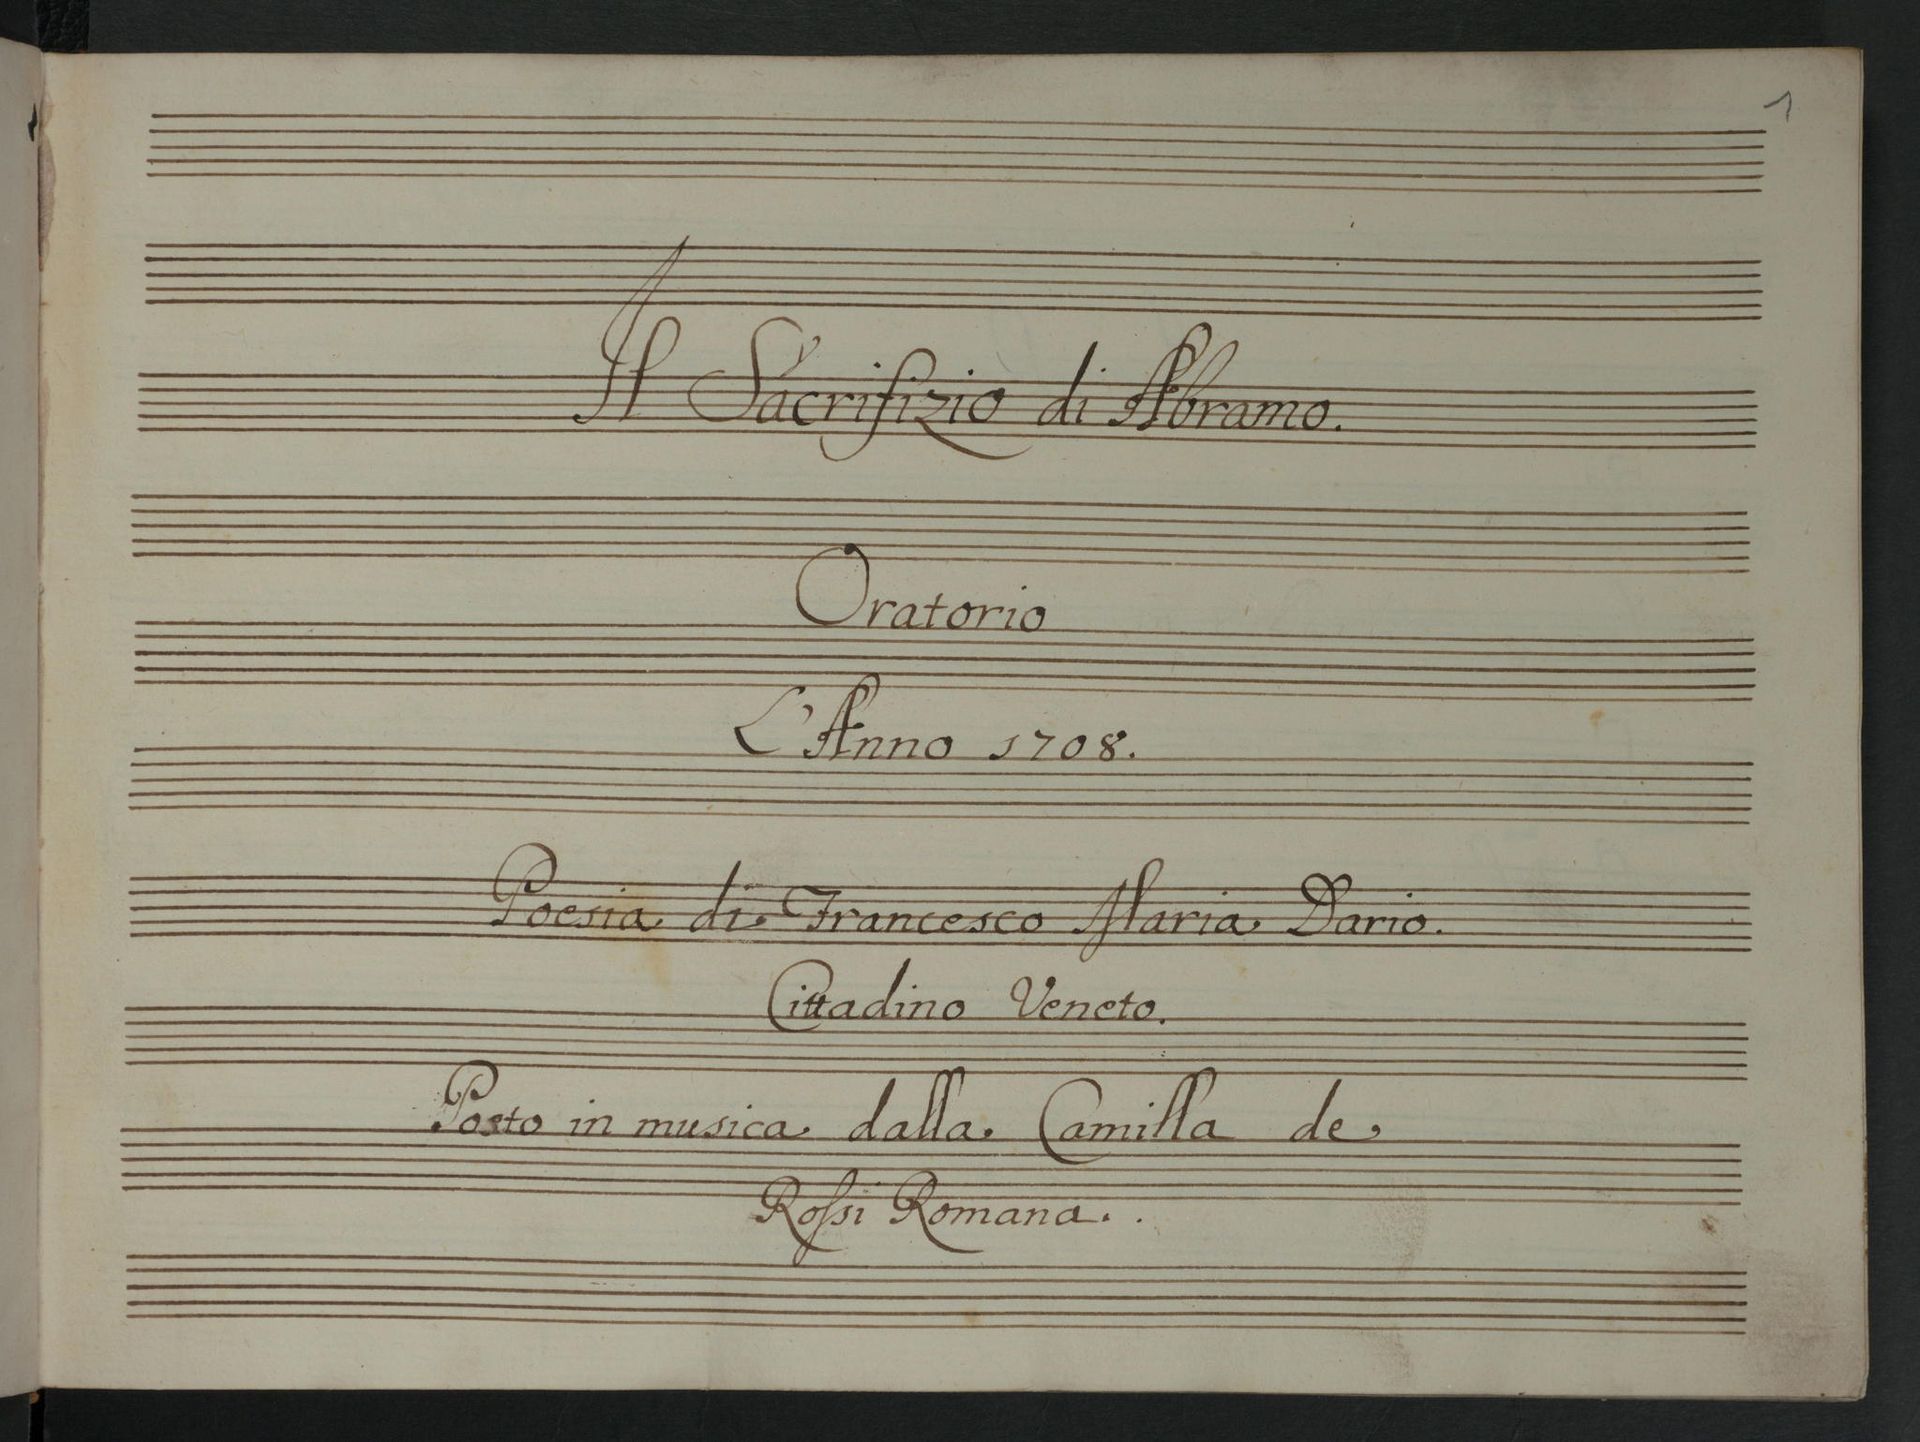 1
Il Sacrifizio di Abramo.
Oratorio
L'Anno 1708.
Poesia di Francesco Maria Dario.
Cittadino Veneto.
Posto in musica dalla Camilla de
Roſsi Romana.